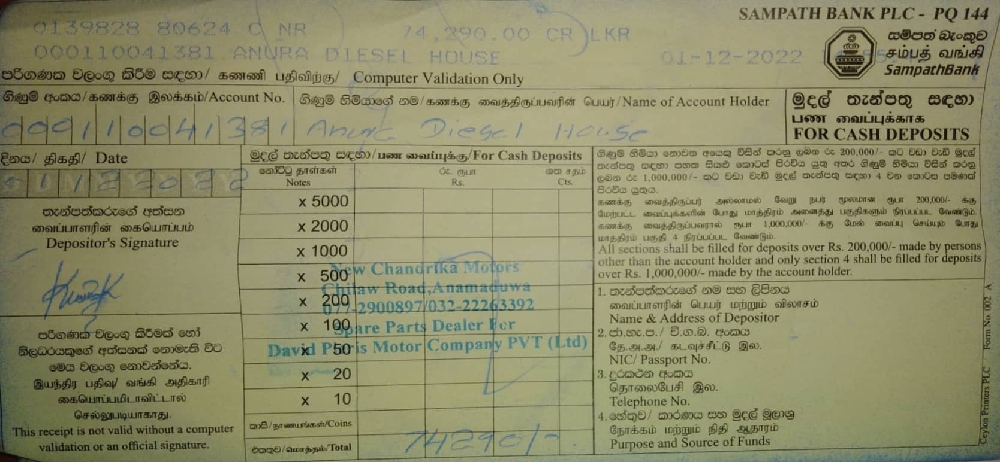 SAMPATH BANK PLC - PQ 144
0139828 80624 C NR 74,290.00 CR LKR
000110041381 ANURA DIESEL HOUSE 01-12-2022
සම්පත් බැංකුව
சம்பத் வங்கி
SampathBank
පරිගණක වලංගු කිරීම සඳහා/ கணணி பதிவிற்கு/ Computer Validation Only
ගිණුම් අංකය/கணக்கு இலக்கம்/Account No. ගිණුම් හිමියාගේ නම/கணக்கு வைத்திருப்பவரின் பெயர்/Name of Account Holder
000110041381 Anura Diesel House
මුදල් තැන්පතු සඳහා
பண வைப்புக்காக
FOR CASH DEPOSITS
දිනය/ திகதி/ Date
මුදල් තැන්පතු සඳහා/பண வைப்புக்கு/For Cash Deposits
නෝට්ටු தாள்கள் රු. ரூபா ශත சதம்
Notes Rs. Cts.
තැන්පත්කරුගේ අත්සන
வைப்பாளரின் கையொப்பம்
Depositor's Signature
x 5000
x 2000
x 1000
x 500
x 200
x 100
x 50
x 20
x 10
New Chandrika Motors
Chilaw Road,Anamaduwa
077-2900897/032-22263392
Spare Parts Dealer For
David Peiris Motor Company PVT (Ltd)
කාසි/நாணயங்கள்/Coins
එකතුව/மொத்தம்/Total 74290/-
පරිගණක වලංගු කිරීමක් හෝ
නිලධරයකුගේ අත්සනක් නොමැති විට
මෙය වලංගු නොවන්නේය.
இயந்திர பதிவு/ வங்கி அதிகாரி
கையொப்பமிடாவிட்டால்
செல்லுபடியாகாது.
This receipt is not valid without a computer
validation or an official signature.
All sections shall be filled for deposits over Rs. 200,000/- made by persons
other than the account holder and only section 4 shall be filled for deposits
over Rs. 1,000,000/- made by the account holder.
1. තැන්පත්කරුගේ නම සහ ලිපිනය
வைப்பாளரின் பெயர் மற்றும் விலாசம்
Name & Address of Depositor
2. ජා.හැ.ප./ වි.ග.බ. අංකය
தே.அ.அ./ கடவுச்சீட்டு இல.
NIC/ Passport No.
3. දුරකථන අංකය
தொலைபேசி இல.
Telephone No.
4. හේතුව/ කාරණය සහ මුදල් මූලාශ්‍ර
நோக்கம் மற்றும் நிதி ஆதாரம்
Purpose and Source of Funds
Ceylon Printers PLC Form No. 002 A